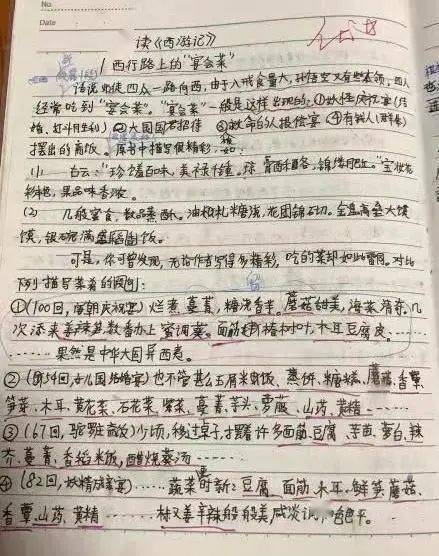 No.
Date
读《西游记》
1 西行路上的“宴会菜”
话说师徒四人一路向西，由于八戒食量大，孙悟空又有些本领，四人
经常吃到“宴会菜”。“宴会菜”一般是这样出现的：①妖怪庆忙宴(结
婚、打斗胜利) ②大国国君招待 ③救命的人报偿宴 ④有钱人(群众)
摆出的斋饭。原书中描写很精彩，如：
(1) 白云：“珍馐百味，美禄千钟。琼膏酥酪，锦缕肥红。”宝妆花
彩艳，果品味香浓。
(2) 几般蜜食，数品蒸酥。油札糖浇，花团锦砌。金盘高垒大馍
馍，银碗满盛稻饭。
可是，你可曾发现，无论作者写得多精彩，吃的菜却如此雷同。对比
下列描写菜肴的图词：
①(100回，唐朝庆祝宴) 烂煮蔓菁，糖浇香芋。蘑菇甜美，海菜清奇。几
次添来姜辣笋，数番办上蜜调葵。面筋椿树叶，木耳豆腐皮。
……果然是中华大国异西夷。
②(第54回，女儿国结婚宴) 也不管甚么玉屑米饭、蒸饼、糖糕、蘑菇、香蕈、
笋芽、木耳、黄花菜、石花菜、紫菜、蔓菁、芋头、萝菔、山药、黄精……
③(67回，驼罗庄斋饭) 少顷，移过桌子，摆着许多面筋、豆腐、芋苗、萝白、辣
芥、蔓菁、香稻米饭，醋烧葵汤……
④(82回，妖精成婚宴)……蔬菜更时新：豆腐、面筋、木耳、鲜笋、蘑菇、
香蕈、山药、黄精……椒姜辛辣般般美，咸淡调色平。